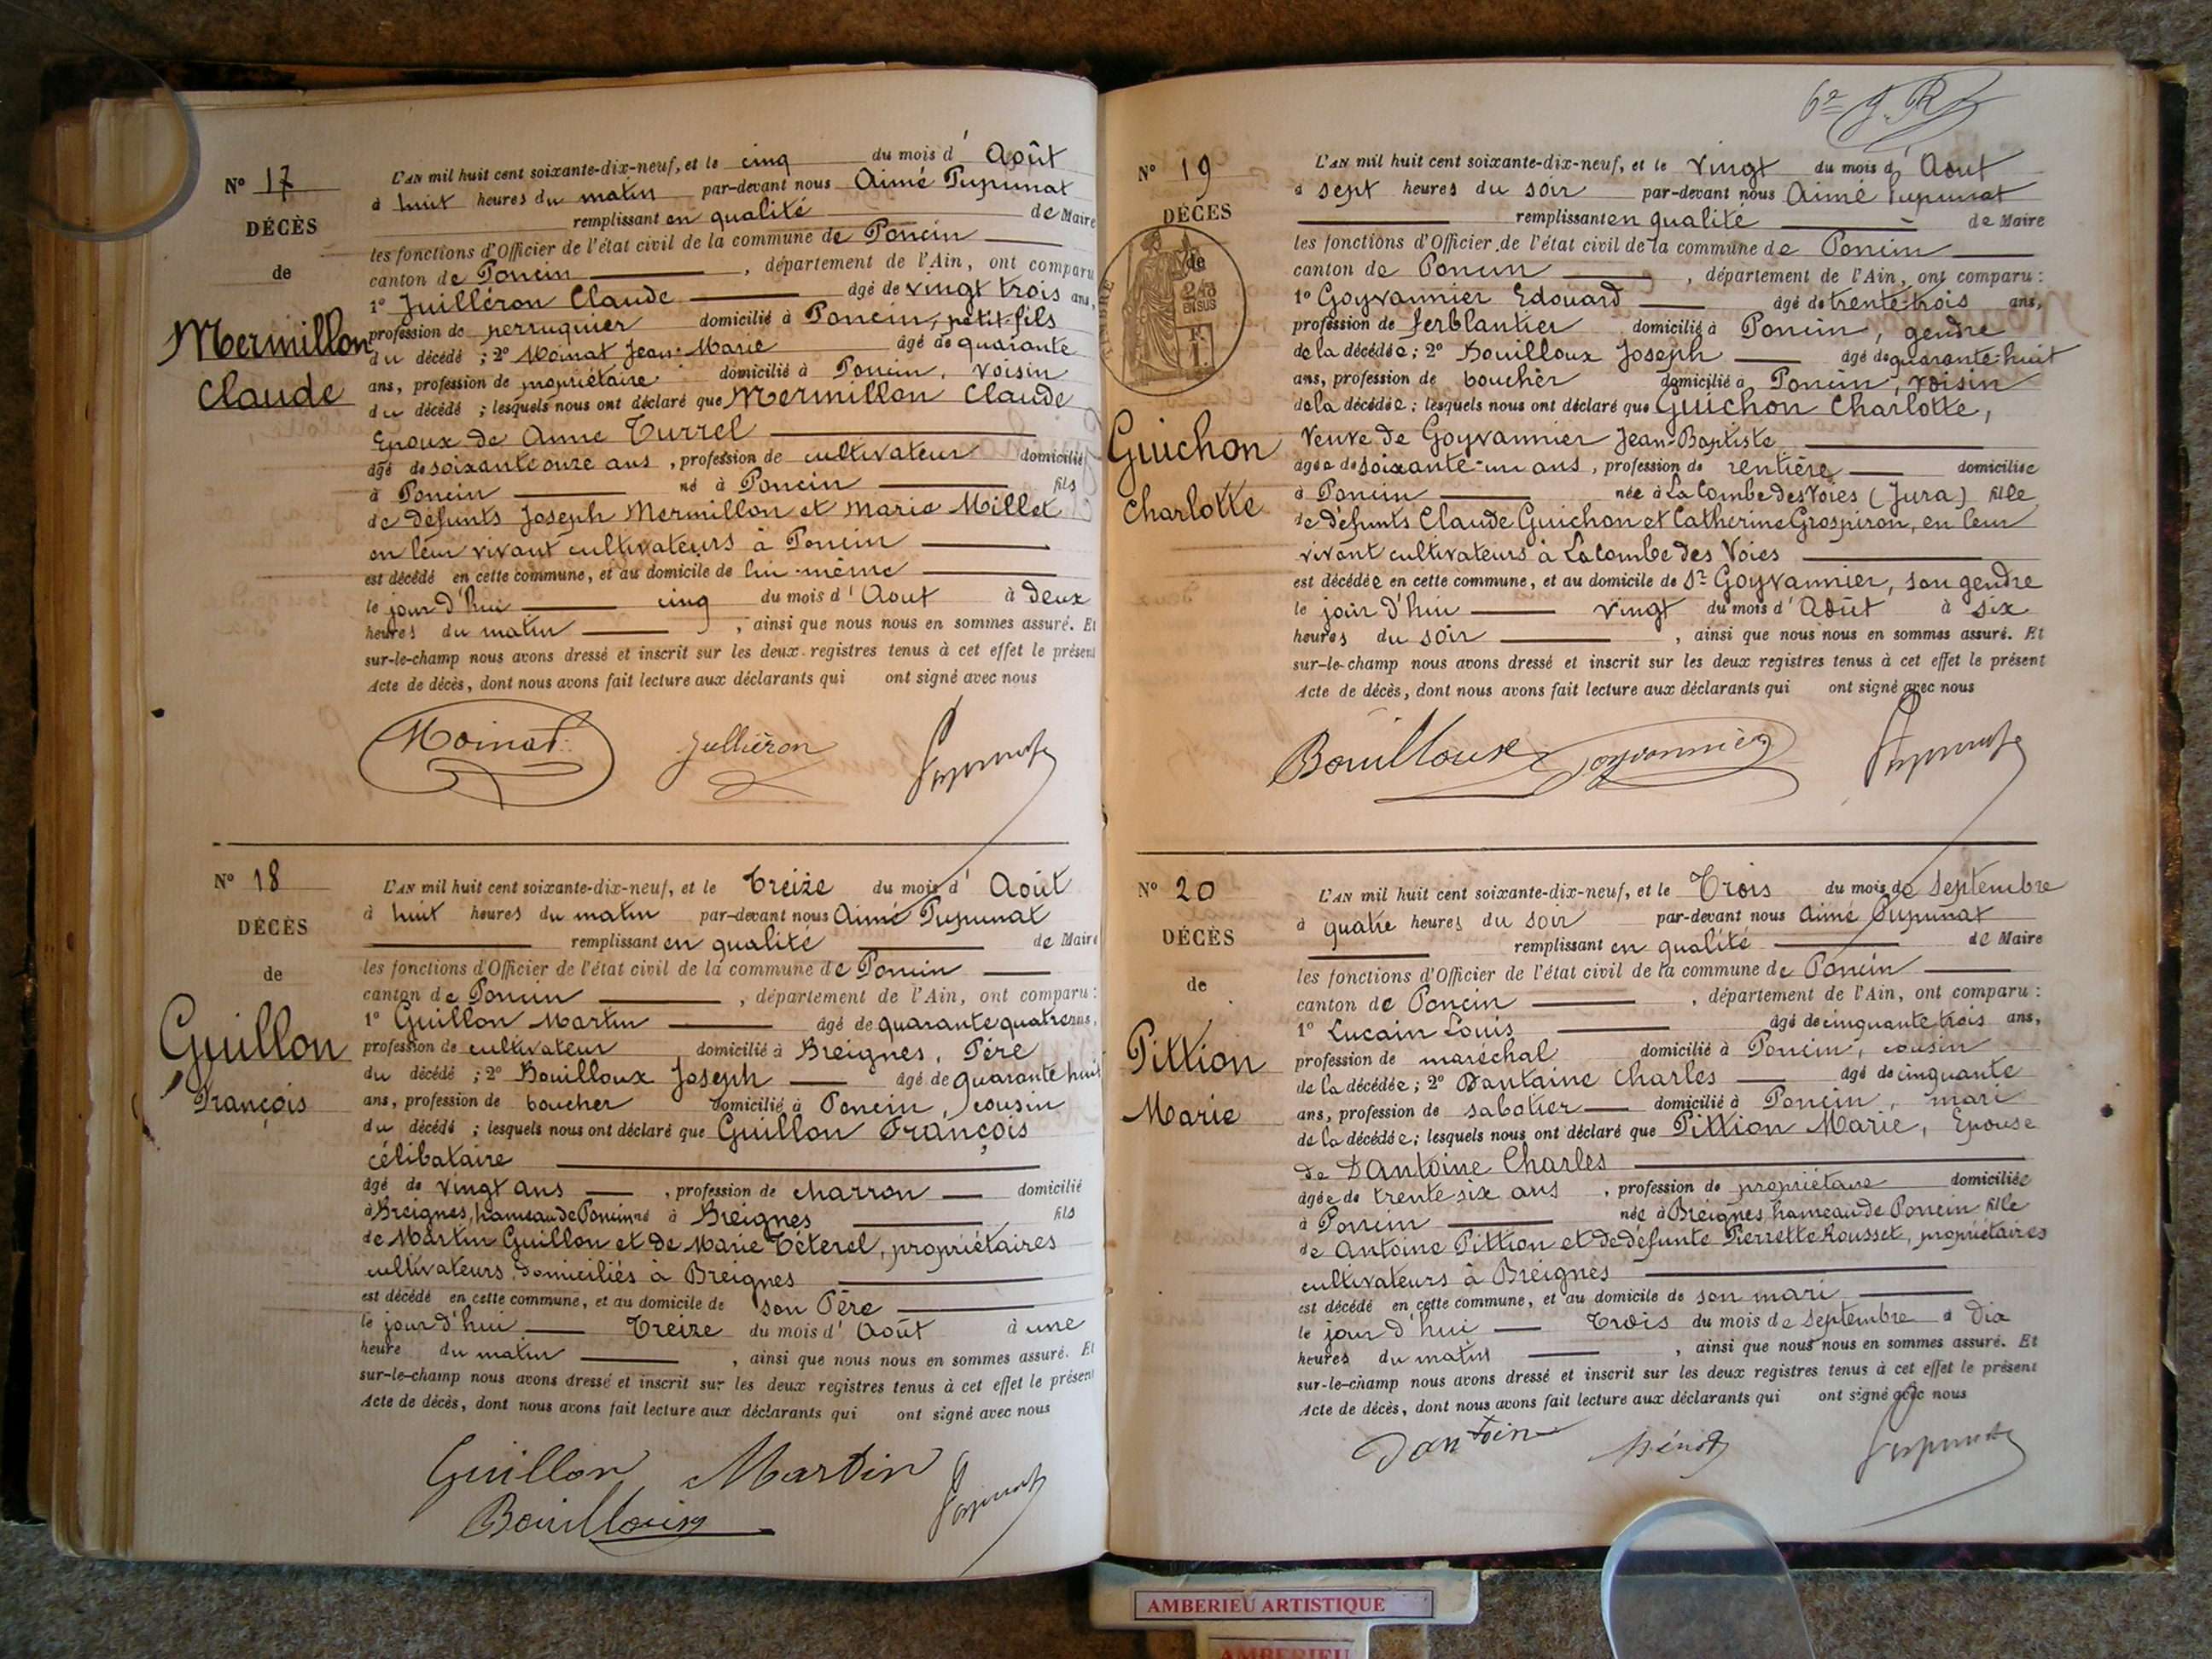 N° 17
DÉCÈS
de
Mermillon
Claude
L'AN mil huit cent soixante-dix-neuf, et le cinq du mois d' Août
à huit heures du matin par-devant nous Aimé Pupunat
remplissant en qualité de Maire
les fonctions d'Officier de l'état civil de la commune de Poncin
canton de Poncin, département de l'Ain, ont comparu
1° Juilléron Claude âgé de vingt trois ans,
profession de perruquier domicilié à Poncin, petit-fils
du décédé ; 2° Moinat Jean-Marie âgé de quarante
ans, profession de propriétaire domicilié à Poncin, voisin
du décédé ; lesquels nous ont déclaré que Mermillon Claude
Epoux de Anne Turrel
âgé de soixante onze ans, profession de cultivateur domicilié
à Poncin né à Poncin fils
de défunts Joseph Mermillon et Marie Millet
en leur vivant cultivateurs à Poncin
est décédé en cette commune, et au domicile de lui-même
le jour d'hui cinq du mois d' Aout à deux
heures du matin, ainsi que nous nous en sommes assuré. Et
sur-le-champ nous avons dressé et inscrit sur les deux registres tenus à cet effet le présent
Acte de décès, dont nous avons fait lecture aux déclarants qui ont signé avec nous
Moinat Juilléron Pupunat
N° 18
DÉCÈS
de
Guillon
François
L'AN mil huit cent soixante-dix-neuf, et le Treize du mois d' Août
à huit heures du matin par-devant nous Aimé Pupunat
remplissant en qualité de Maire
les fonctions d'Officier de l'état civil de la commune de Poncin
canton de Poncin, département de l'Ain, ont comparu :
1° Guillon Martin âgé de quarante quatre ans,
profession de cultivateur domicilié à Breignes, Père
du décédé ; 2° Bouilloux Joseph âgé de quarante huit
ans, profession de boucher domicilié à Poncin, cousin
du décédé ; lesquels nous ont déclaré que Guillon François
célibataire
âgé de vingt ans, profession de charron domicilié
à Breignes, hameau de Poncin né à Breignes fils
de Martin Guillon et de Marie Téterel, propriétaires
cultivateurs, domiciliés à Breignes
est décédé en cette commune, et au domicile de son Père
le jour d'hui Treize du mois d' Août à une
heure du matin, ainsi que nous nous en sommes assuré. Et
sur-le-champ nous avons dressé et inscrit sur les deux registres tenus à cet effet le présent
Acte de décès, dont nous avons fait lecture aux déclarants qui ont signé avec nous
Guillon Martin Pupunat
Bouilloux
N° 19
DÉCÈS
de
Guichon
Charlotte
L'AN mil huit cent soixante-dix-neuf, et le vingt du mois d' Aout
à sept heures du soir par-devant nous Aimé Pupunat
remplissant en qualité de Maire
les fonctions d'Officier de l'état civil de la commune de Poncin
canton de Poncin, département de l'Ain, ont comparu :
1° Goyvannier Edouard âgé de trente-trois ans,
profession de ferblantier domicilié à Poncin, gendre
de la décédée ; 2° Bouilloux Joseph âgé de quarante-huit
ans, profession de boucher domicilié à Poncin, voisin
de la décédée ; lesquels nous ont déclaré que Guichon Charlotte,
Veuve de Goyvannier Jean-Baptiste
âgée de soixante-un ans, profession de rentière domiciliée
à Poncin née à La Combe des Voies (Jura) fille
de défunts Claude Guichon et Catherine Grospiron, en leur
vivant cultivateurs à La combe des Voies
est décédée en cette commune, et au domicile de Sr Goyvannier, son gendre
le jour d'hui vingt du mois d' Août à six
heures du soir, ainsi que nous nous en sommes assuré. Et
sur-le-champ nous avons dressé et inscrit sur les deux registres tenus à cet effet le présent
Acte de décès, dont nous avons fait lecture aux déclarants qui ont signé avec nous
Bouilloux Goyvannier Pupunat
N° 20
DÉCÈS
de
Pittion
Marie
L'AN mil huit cent soixante-dix-neuf, et le Trois du mois de Septembre
à quatre heures du soir par-devant nous Aimé Pupunat
remplissant en qualité de Maire
les fonctions d'Officier de l'état civil de la commune de Poncin
canton de Poncin, département de l'Ain, ont comparu :
1° Lucain Louis âgé de cinquante trois ans,
profession de maréchal domicilié à Poncin, cousin
de la décédée ; 2° Dantaine Charles âgé de cinquante
ans, profession de sabotier domicilié à Poncin, mari
de la décédée ; lesquels nous ont déclaré que Pittion Marie, Epouse
de Dantoine Charles
âgée de trente six ans, profession de propriétaire domiciliée
à Poncin née à Breignes, hameau de Poncin fille
de Antoine Pittion et de défunte Pierrette Rousset, propriétaires
cultivateurs à Breignes
est décédé en cette commune, et au domicile de son mari
le jour d'hui Trois du mois de Septembre à Dix
heures du matin, ainsi que nous nous en sommes assuré. Et
sur-le-champ nous avons dressé et inscrit sur les deux registres tenus à cet effet le présent
Acte de décès, dont nous avons fait lecture aux déclarants qui ont signé avec nous
Dantoine Pupunat
AMBERIEU ARTISTIQUE
AMBERIEU